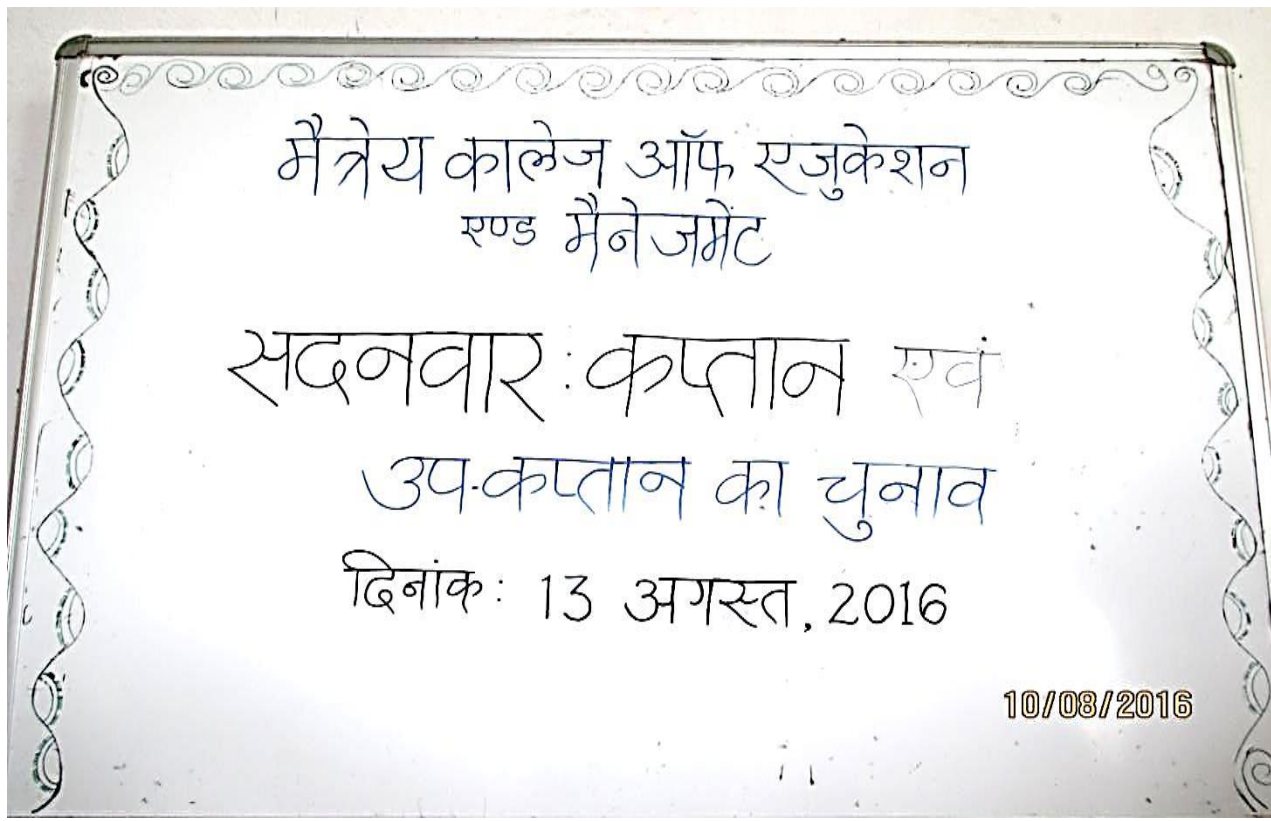 मैत्रेय कालेज ऑफ एजुकेशन
एण्ड मैनेजमेंट
सदनवार: कप्तान एवं
उप-कप्तान का चुनाव
दिनांक: 13 अगस्त, 2016
10/08/2016